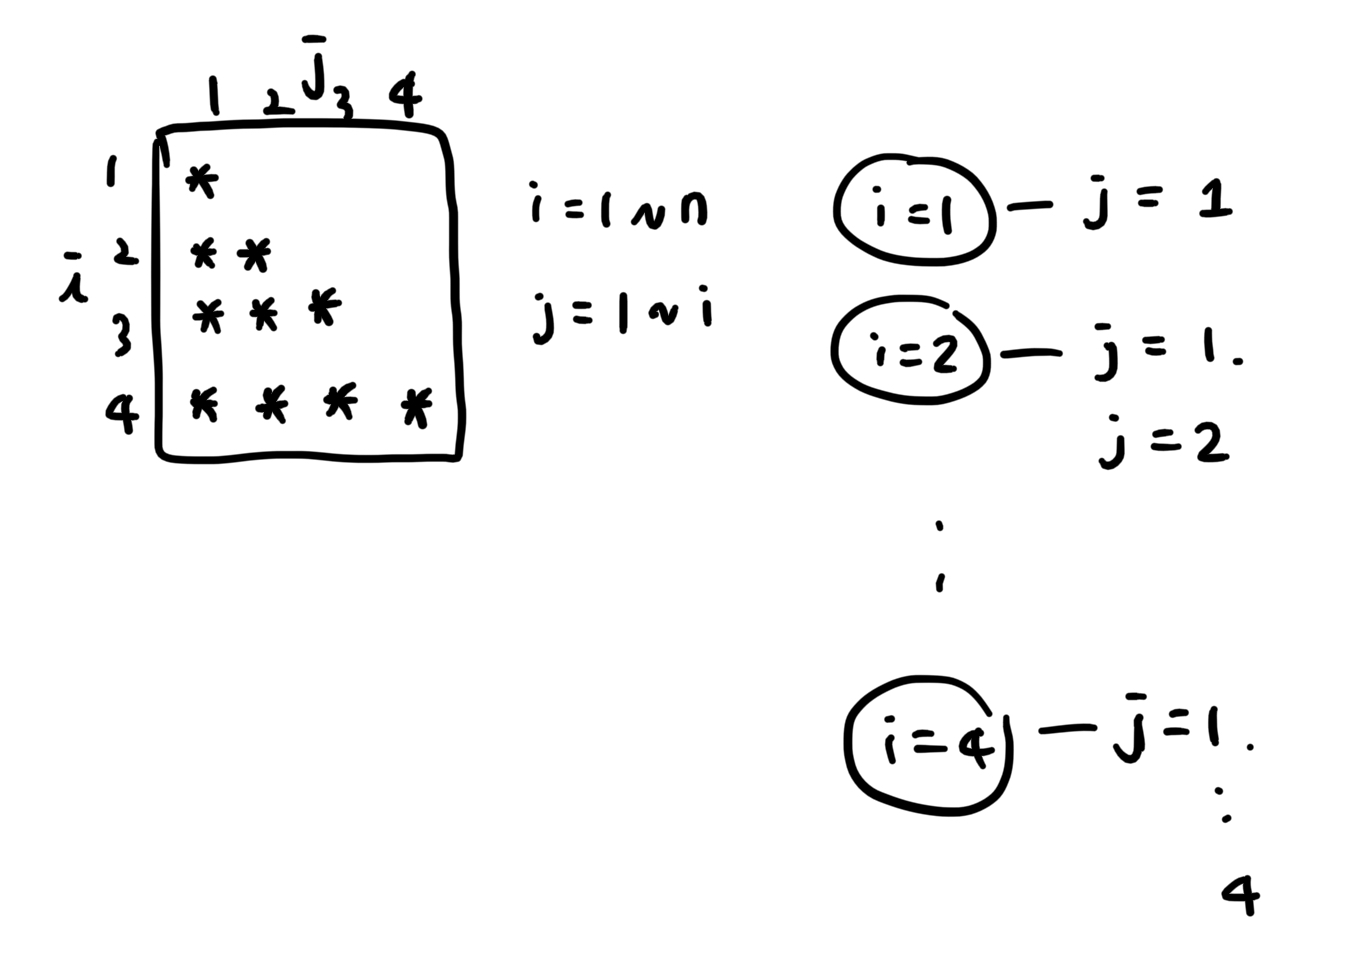 j
1 2 3 4
1 *
2 * *
i
3 * * *
4 * * * *
i = 1 ~ n
j = 1 ~ i
i = 1 — j = 1
i = 2 — j = 1.
j = 2
:
i = 4 — j = 1.
:
4